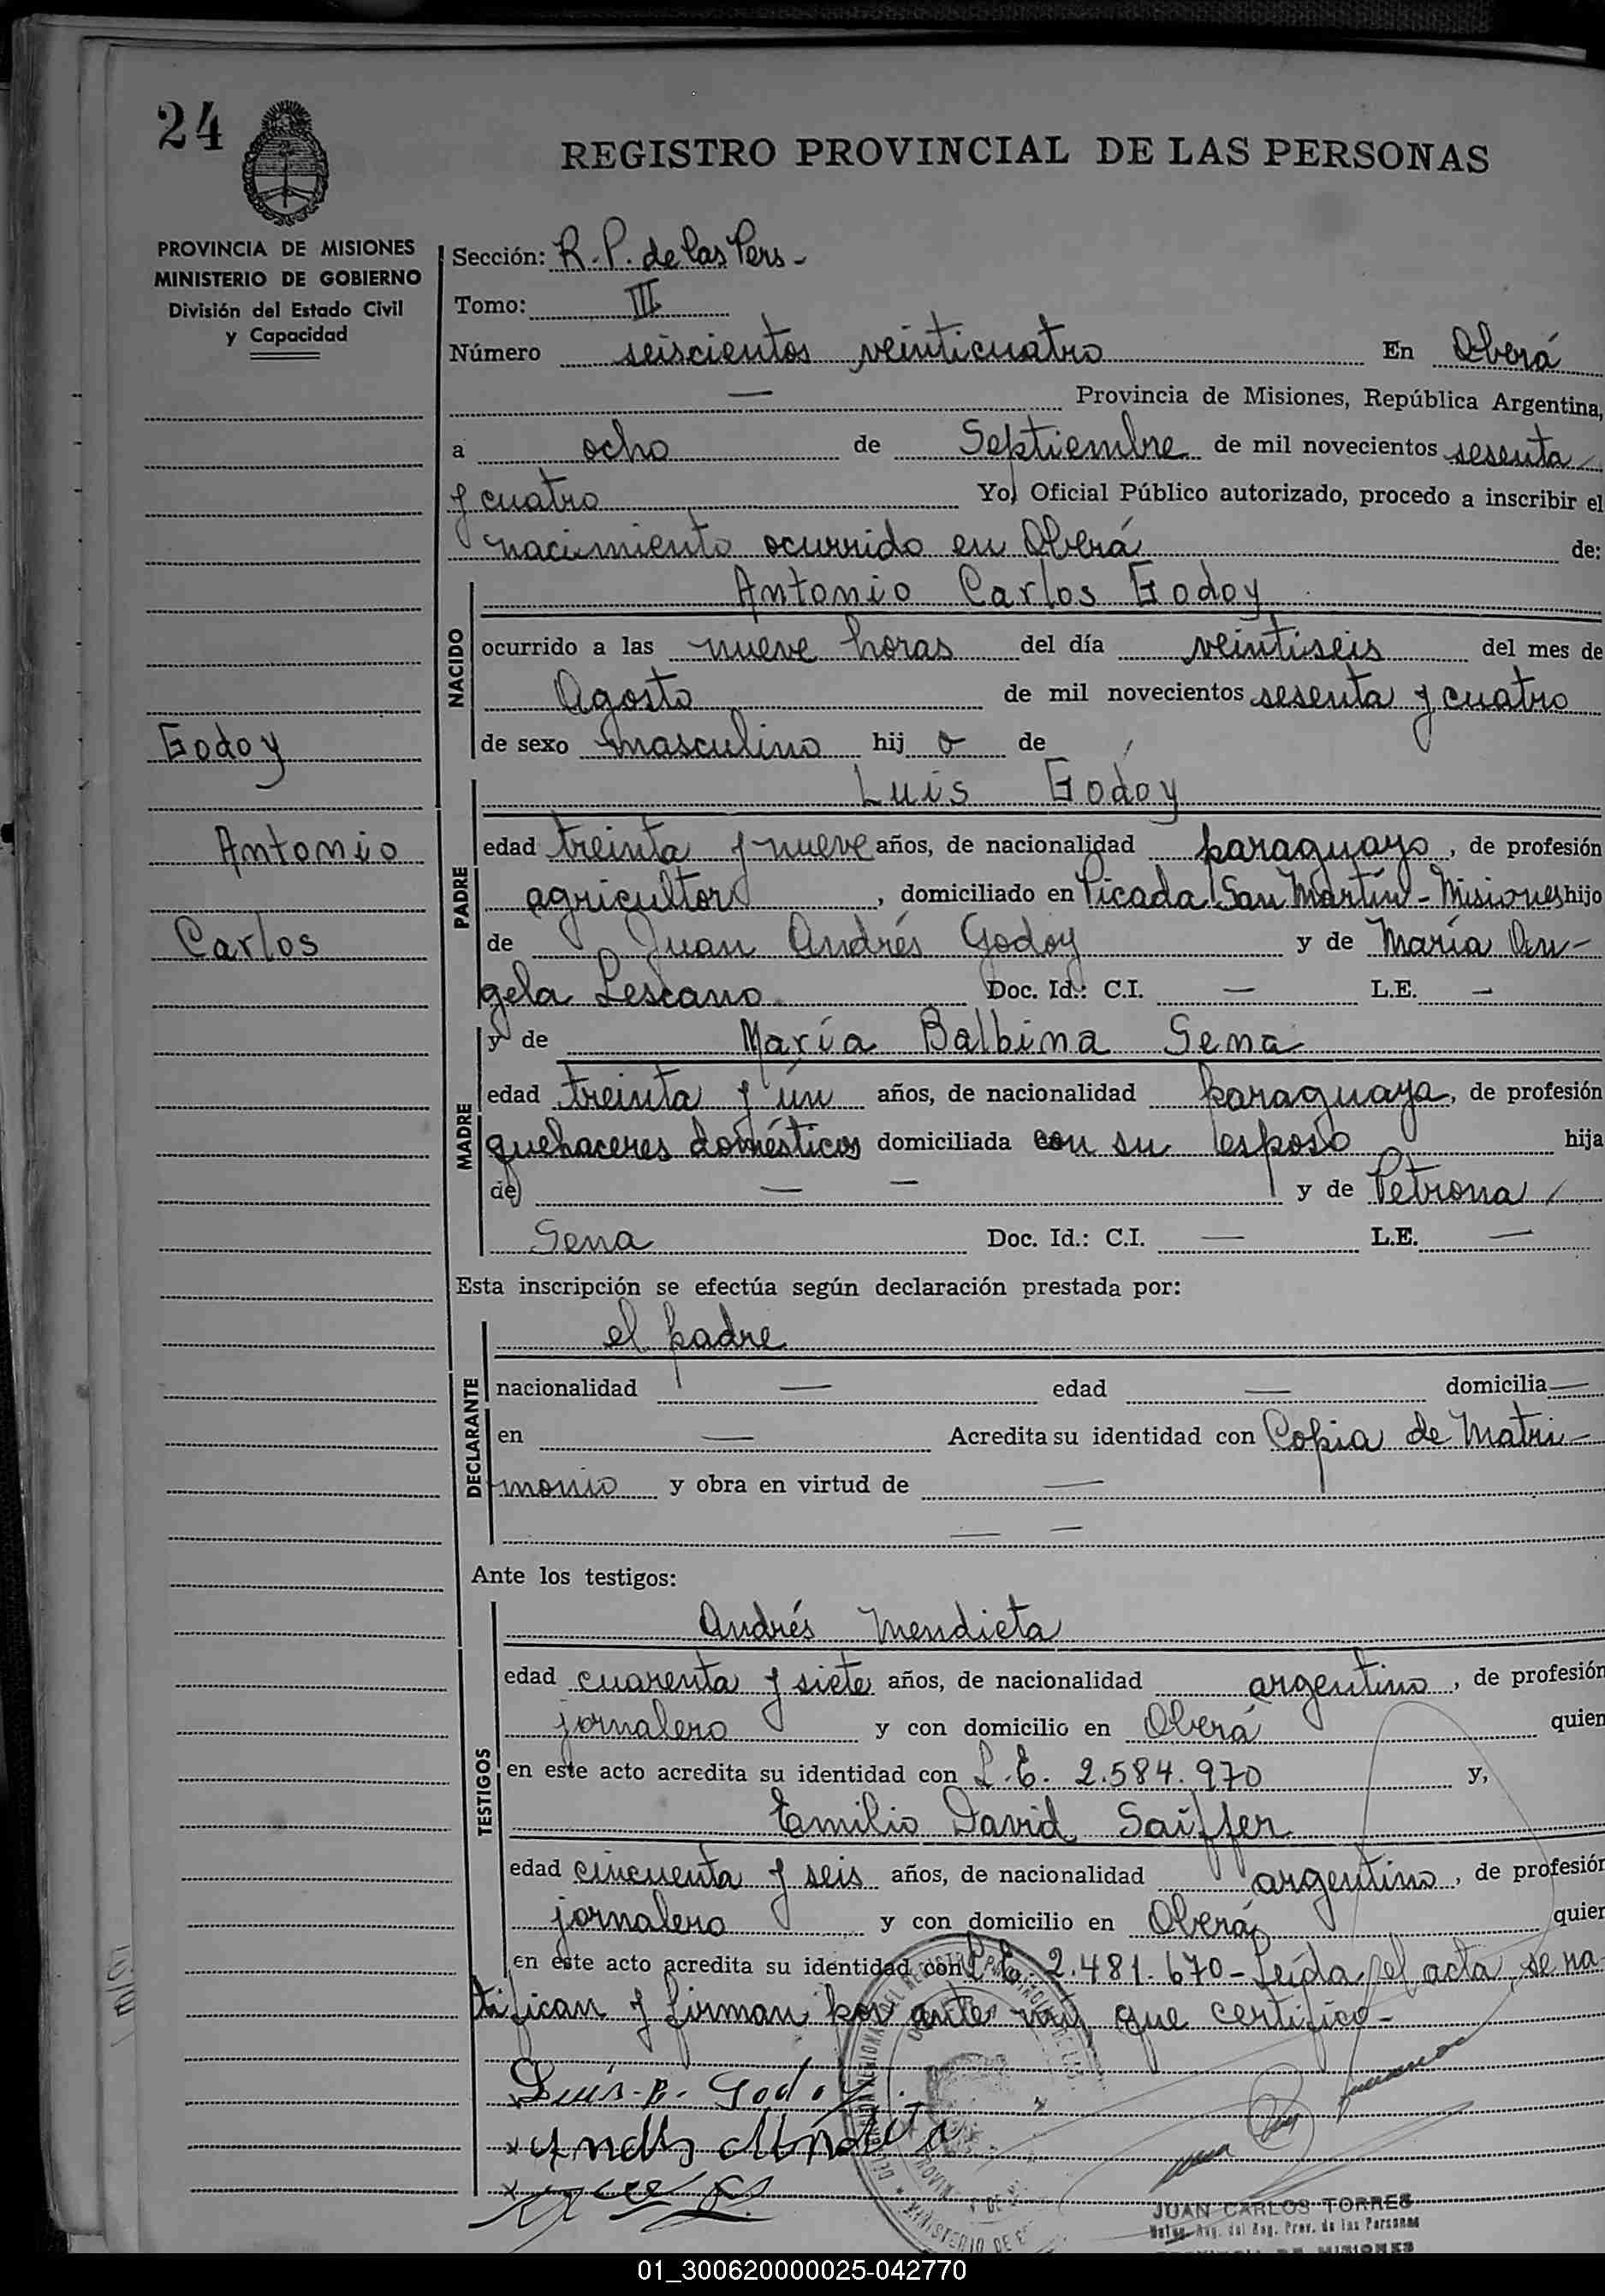 24
REGISTRO PROVINCIAL DE LAS PERSONAS
PROVINCIA DE MISIONES
MINISTERIO DE GOBIERNO
División del Estado Civil
y Capacidad
Sección: R. P. de las Pers -
Tomo: III
Número seiscientos veinticuatro En Oberá
— Provincia de Misiones, República Argentina,
a ocho de Septiembre de mil novecientos sesenta
y cuatro Yo, Oficial Público autorizado, procedo a inscribir el
nacimiento ocurrido en Oberá de:
NACIDO
Antonio Carlos Godoy
ocurrido a las nueve horas del día veintiseis del mes de
Agosto de mil novecientos sesenta y cuatro
de sexo masculino hij o de
Godoy
Antonio
Carlos
PADRE
Luis Godoy
edad treinta y nueve años, de nacionalidad paraguayo, de profesión
agricultor, domiciliado en Picada San Martín - Misiones hijo
de Juan Andrés Godoy y de María An-
gela Lescano Doc. Id.: C.I. — L.E. —
MADRE
y de María Balbina Sena
edad treinta y ún años, de nacionalidad paraguaya, de profesión
quehaceres domésticos domiciliada con su esposo hija
de — — y de Petrona
Sena Doc. Id.: C.I. — L.E. —
Esta inscripción se efectúa según declaración prestada por:
DECLARANTE
el padre
nacionalidad — edad — domicilia —
en — Acredita su identidad con Copia de Matri-
monio y obra en virtud de —
— —
Ante los testigos:
TESTIGOS
Andrés Mendieta
edad cuarenta y siete años, de nacionalidad argentino, de profesión
jornalero y con domicilio en Oberá quien
en este acto acredita su identidad con L.E. 2.584.970 y,
Emilio David Saiffer
edad cincuenta y seis años, de nacionalidad argentino, de profesión
jornalero y con domicilio en Oberá quien
en este acto acredita su identidad con L.E. 2.481.670 - Leída el acta, se ra
tifican y firman por ante mí, que certifico -
Luis. B. Godoy
JUAN CARLOS TORRES
del Reg. Prov. de las Personas
DE MISIONES
01_300620000025-042770